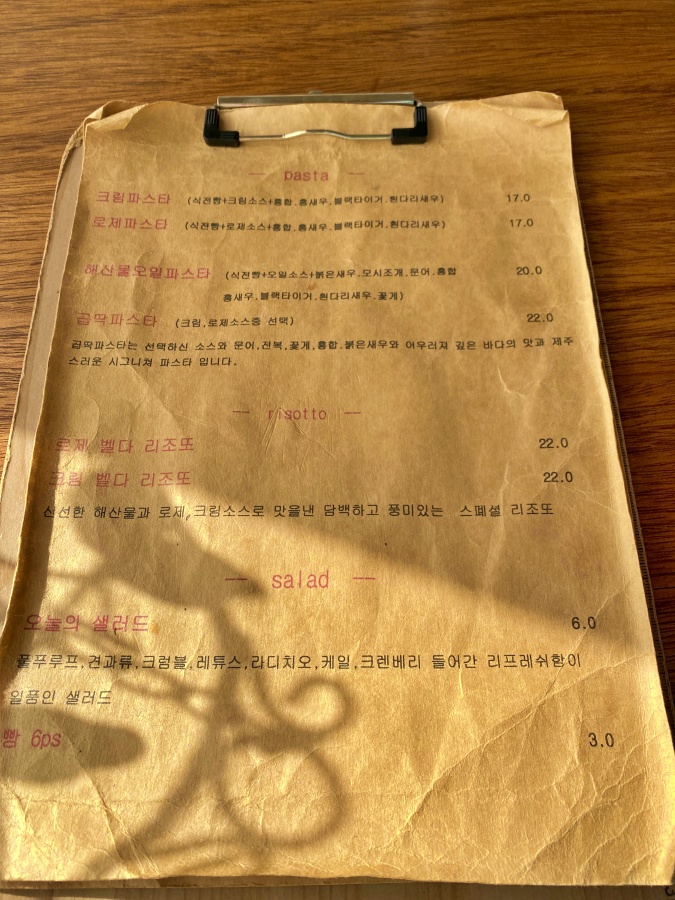 — pasta —
크림파스타 (식전빵+크림소스+홍합.홍새우.블랙타이거.흰다리새우) 17.0
로제파스타 (식전빵+로제소스+홍합.홍새우.블랙타이거.흰다리새우) 17.0
해산물오일파스타 (식전빵+오일소스+붉은새우.모시조개.문어.홍합 20.0
홍새우.블랙타이거.흰다리새우.꽃게)
곱딱파스타 (크림,로제소스중 선택) 22.0
곱딱파스타는 선택하신 소스와 문어,전복,꽃게,홍합.붉은새우와 어우러져 깊은 바다의 맛과 제주
스러운 시그니쳐 파스타 입니다.
— risotto —
로제 벨다 리조또 22.0
크림 벨다 리조또 22.0
신선한 해산물과 로제,크림소스로 맛을낸 담백하고 풍미있는 스폐셜 리조또
— salad —
오늘의 샐러드 6.0
풀푸루프,견과류,크럼블,레튜스,라디치오,케일,크렌베리 들어간 리프레쉬함이
일품인 샐러드
빵 6ps 3.0